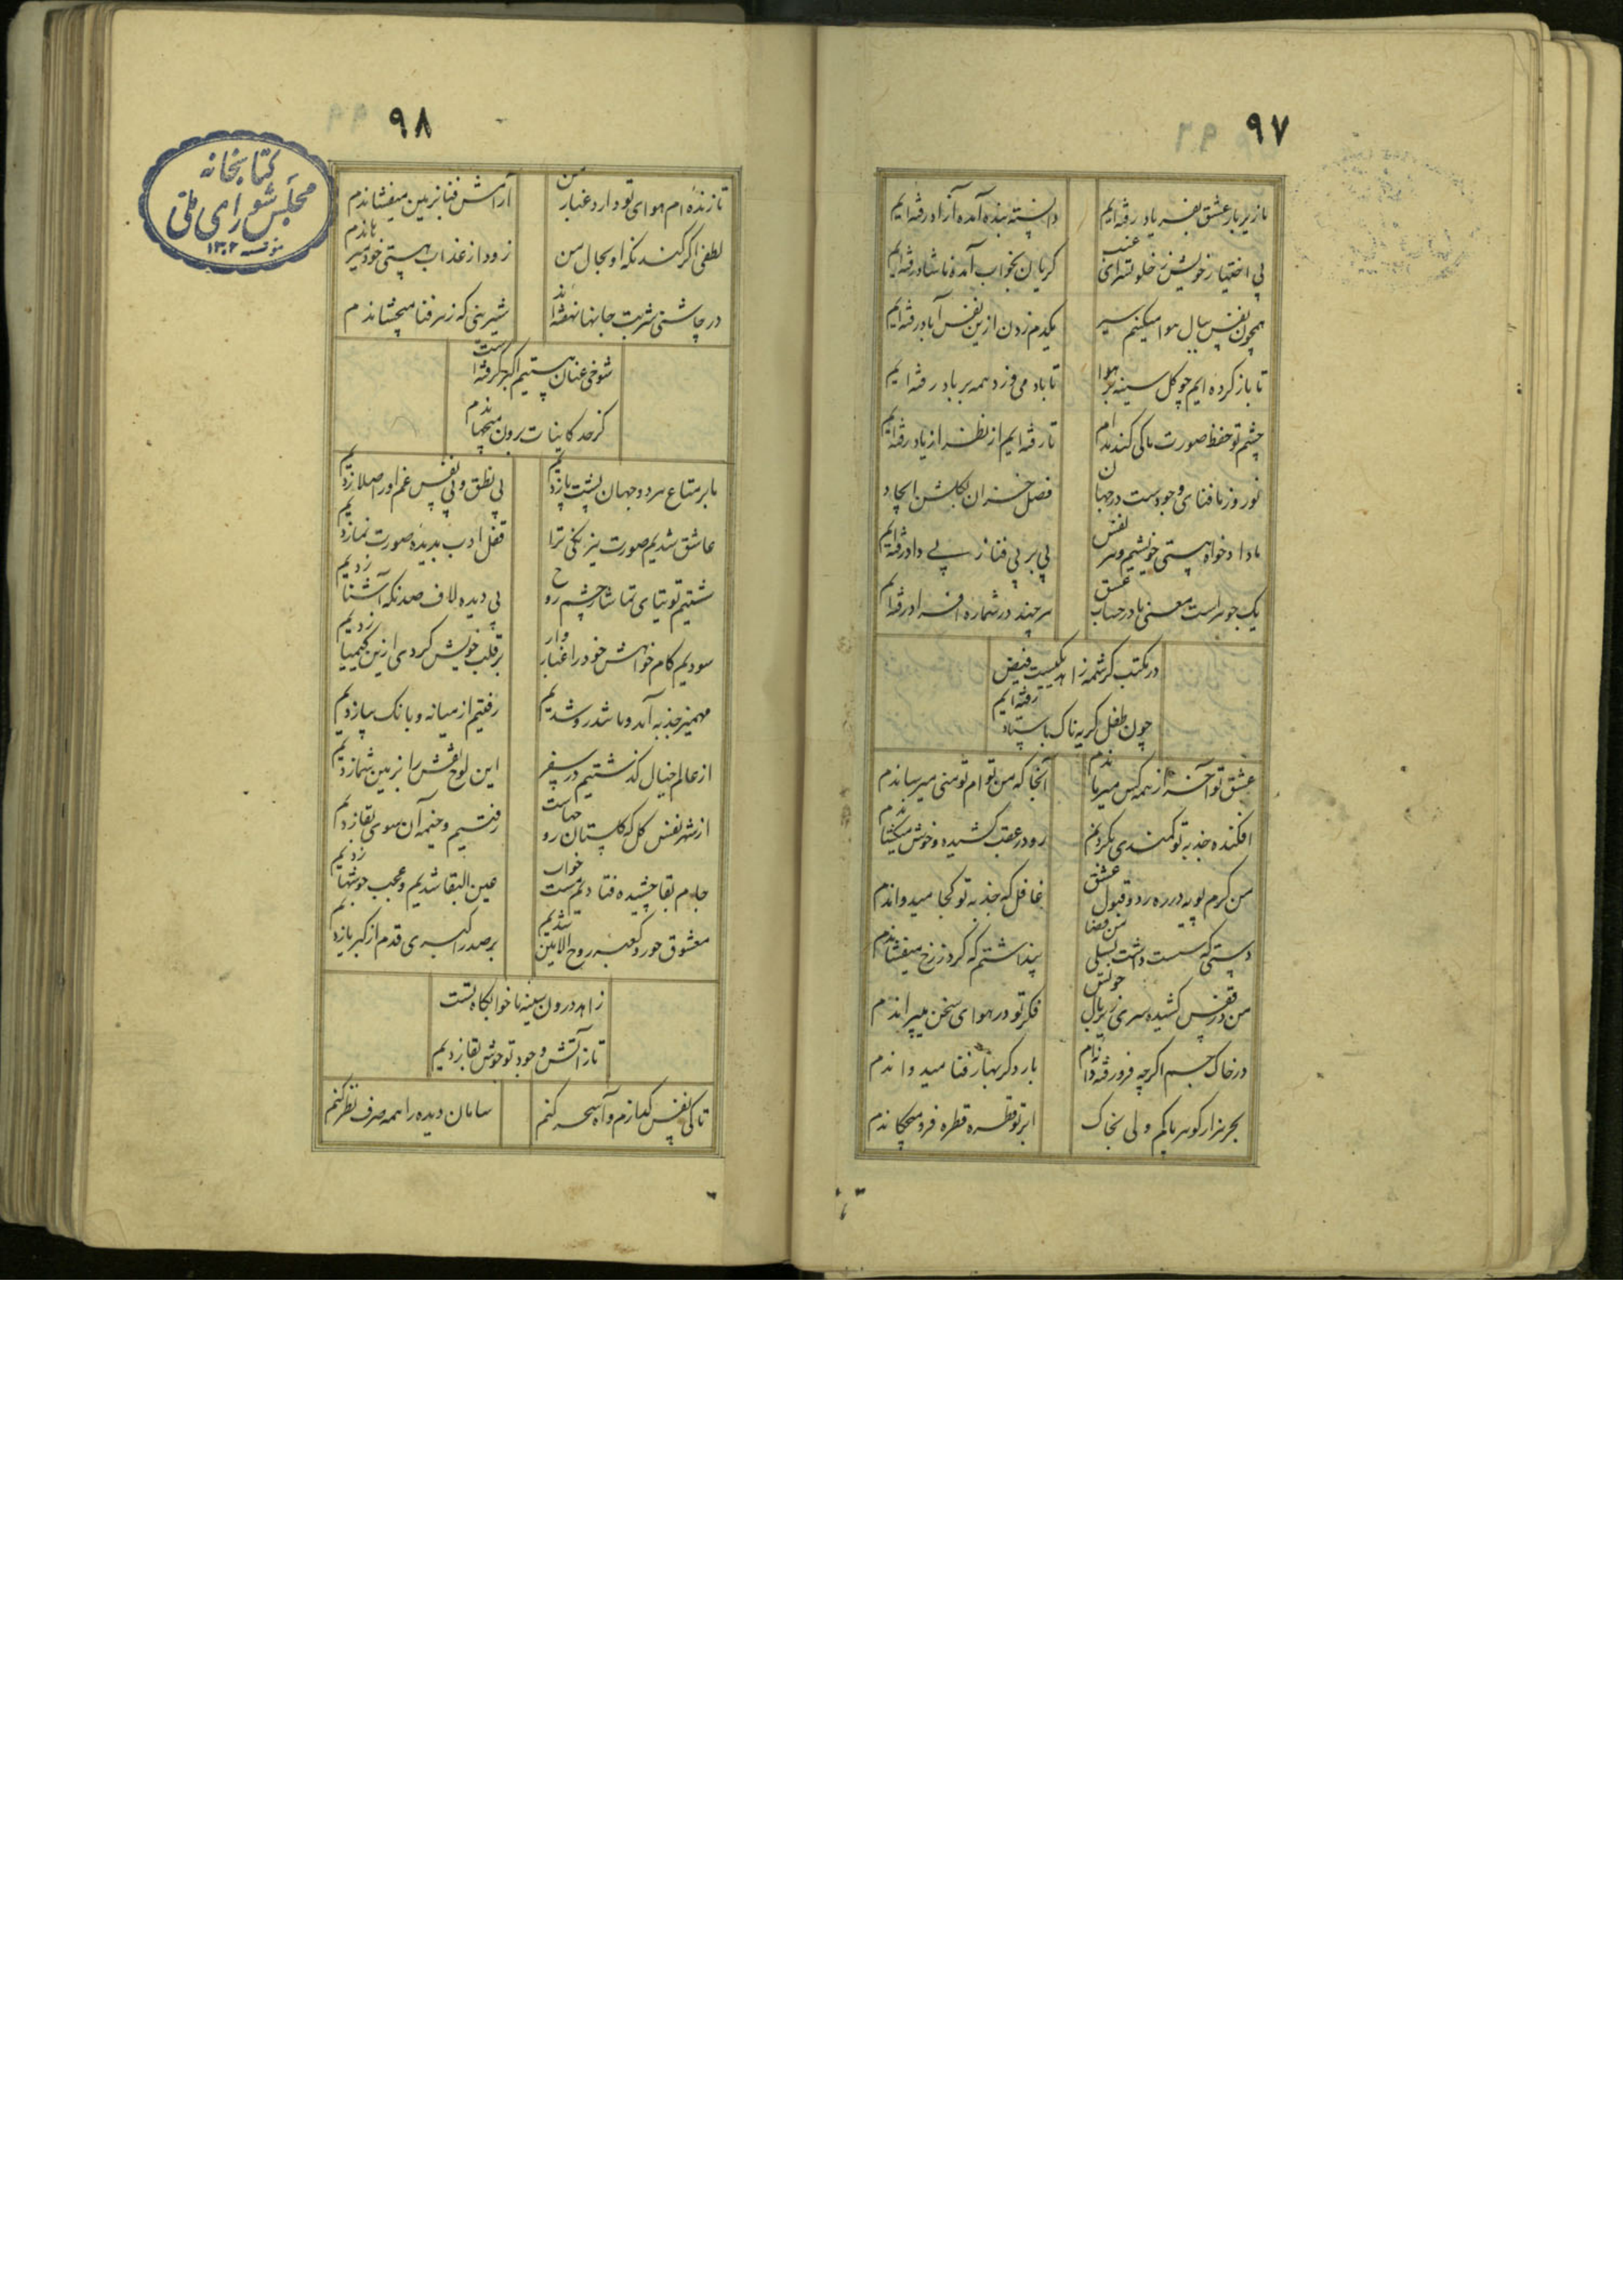 ۹۷
ما زیر بار عشق بفریاد رفته‌ایم
دانسته بنده آمده آزاد رفته‌ایم
بی اختیار خویش ز خلوتسرای غیب
گریان بخواب آمده ناشاد رفته‌ایم
همچون نفس ببال هوا میکنیم سیر
یکدم زدن ازین نفس آباد رفته‌ایم
تا باز کرده ایم چو گل سینه بر هوا
تا باد می وزد همه بر باد رفته ایم
چشم تو حفظ صورت ما کی کند مدام
تا رفته ایم از نظر از یاد رفته‌ایم
نوروز ما فنای وجودست در جهان
فصل خزان بگلشن ایجاد
ما دادخواه هستی خویشیم و هر نفس
پی بر پی فنا ز پی داد رفته‌ایم
یک جوهر است معنی ما در حساب عشق
هر چند در شماره افراد رفته‌ایم
در مکتب کرشمه زاهد یکیست فیض
چون طفل گریه ناک باستاد رفته ایم
عشق تو آخر از همه کس میرهاندم
آنجا که من توام تو منی میرساندم
افکنده جذبه تو کمندی بگردنم
رو در عقب کشیده و خوش میکشاندم
من گرم پویه در ره رد و قبول عشق
غافل که جذبه تو کجا میدواندم
دستی که سست داشت بسیلی من قضا
پنداشتم که گرد ز رخ میفشاندم
من در قفس کشیده سری زیر بال خویش
فکر تو در هوای سخن میپراندم
در خاک جسم اگرچه فرو رفته دانه‌ام
بار دگر بهار فنا میدواندم
بحر هزار گوهر پاکم ولی بخاک
ابر تو قطره قطره فرو میچکاندم
۹۸
تا زنده‌ام هوای تو دارد غبار من
آرامش فنا بزمین میفشاندم
لطفی اگر کند نگه او بحال من
زود از عذاب هستی خود میرهاندم
در چاشنی شربت جانها نهفته‌اند
شیرینی که زهر فنا میچشاندم
شوخی عنان هستیم اکبر گرفته است
کز حد کاینات برون میجهاندم
ما بر متاع هر دو جهان پشت پا زدیم
بی نطق و بی نفس غم او را صلا زدیم
عاشق شدیم صورت نیرنگی ترا
قفل ادب بدیده صورت نما زدیم
شستیم توتیای تماشا ز چشم روح
بی دیده لاف صد نگه آشنا زدیم
سودیم کام خواهش خود را غباروار
بر قلب خویش گردی ازین کیمیا زدیم
مهمیز جذبه آمد و ما شد رو شدیم
رفتیم از میانه و بانگ بیا زدیم
از عالم خیال گذشتیم در سفر
این لوح نقش را بزمین شما زدیم
از شهر نفس کل که گلستان رو جهاست
رفتیم و خیمه آن سوی بقا زدیم
جام بقا چشیده فتادیم مست خواب
عین البقا شدیم و عجب جوشها زدیم
معشوق حور و کعبه روح الامین شدیم
بر صدر اکبری قدم از کبریا زدیم
زاهد درون سینه ما خوابگاه تست
تا ز آتش وجود تو جوش بقا زدیم
تا کی نفس گدازم و آه سحر کنم
سامان دیده را همه صرف نظر کنم
کتابخانه
مجلس شورای ملی
مؤسسه ۱۳۰۲